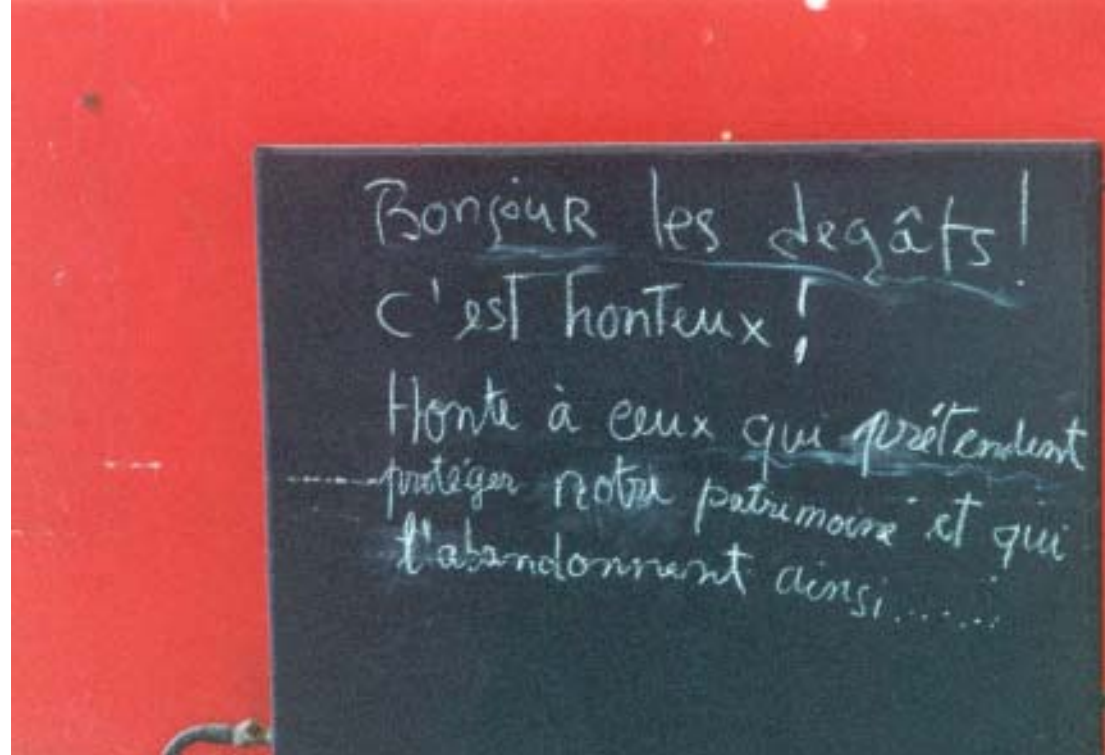 BonjouR les degâts !
C'est honteux !
Honte à ceux qui prétendent
protéger notre patrimoine et qui
l'abandonnent ainsi ......